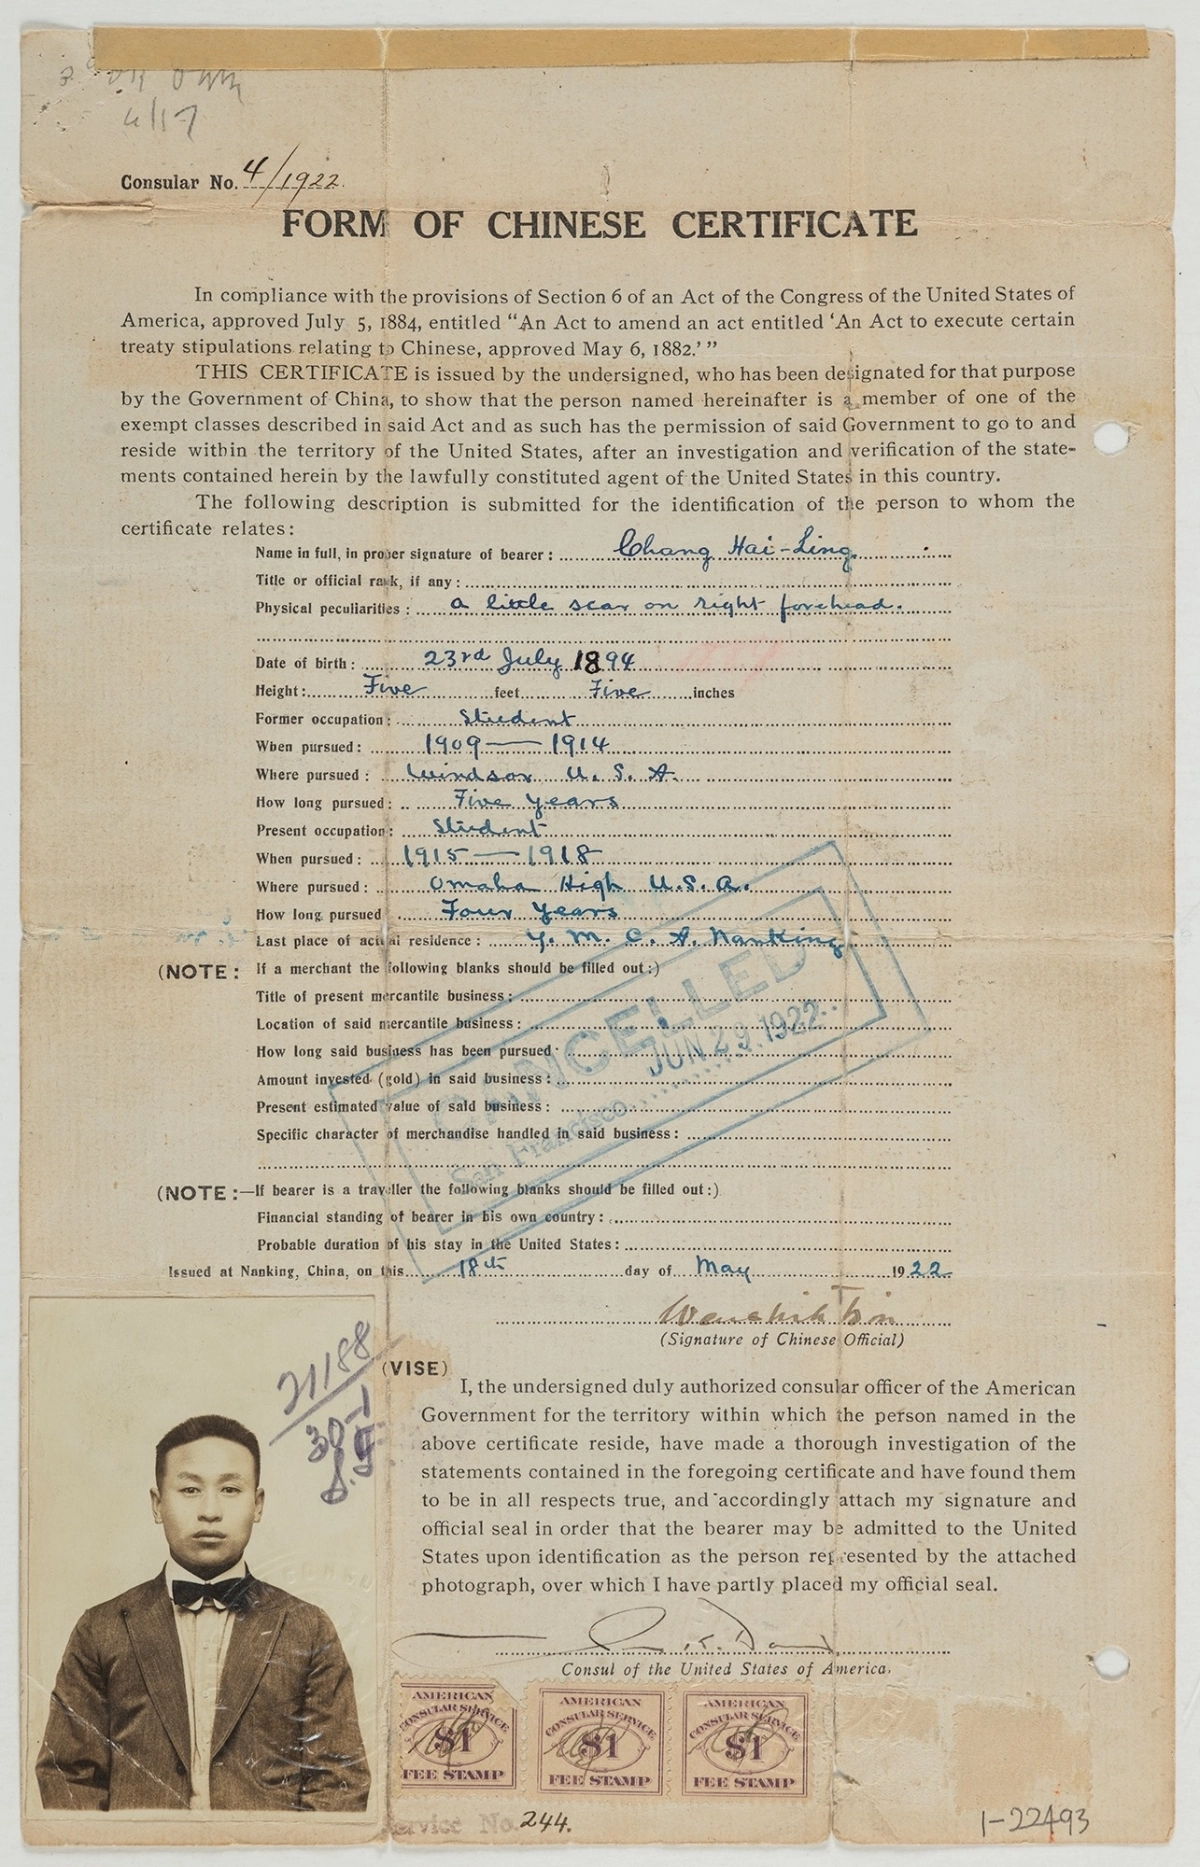 4/17
Consular No. 4/1922.
FORM OF CHINESE CERTIFICATE
In compliance with the provisions of Section 6 of an Act of the Congress of the United States of
America, approved July 5, 1884, entitled “An Act to amend an act entitled ‘An Act to execute certain
treaty stipulations relating to Chinese, approved May 6, 1882.’ ”
THIS CERTIFICATE is issued by the undersigned, who has been designated for that purpose
by the Government of China, to show that the person named hereinafter is a member of one of the
exempt classes described in said Act and as such has the permission of said Government to go to and
reside within the territory of the United States, after an investigation and verification of the state-
ments contained herein by the lawfully constituted agent of the United States in this country.
The following description is submitted for the identification of the person to whom the
certificate relates:
Name in full, in proper signature of bearer: Chang Hai-Ling.
Title or official rank, if any:
Physical peculiarities: a little scar on right forehead.
Date of birth: 23rd July 1894
Height: Five feet Five inches
Former occupation: Student
When pursued: 1909 — 1914
Where pursued: Windsor U. S. A.
How long pursued: Five years
Present occupation: Student
When pursued: 1915 — 1918
Where pursued: Omaha High U.S.A.
How long pursued Four years
Last place of actual residence: Y. M. C. A. Nanking
(NOTE: If a merchant the following blanks should be filled out:)
Title of present mercantile business:
Location of said mercantile business:
How long said business has been pursued:
Amount invested (gold) in said business:
Present estimated value of said business:
Specific character of merchandise handled in said business:
CANCELLED
JUN 29 1922
San Francisco
(NOTE:—If bearer is a traveller the following blanks should be filled out:)
Financial standing of bearer in his own country:
Probable duration of his stay in the United States:
Issued at Nanking, China, on this 18th day of May 1922
(Signature of Chinese Official)
21188
30-1
(VISE)
I, the undersigned duly authorized consular officer of the American
Government for the territory within which the person named in the
above certificate reside, have made a thorough investigation of the
statements contained in the foregoing certificate and have found them
to be in all respects true, and accordingly attach my signature and
official seal in order that the bearer may be admitted to the United
States upon identification as the person represented by the attached
photograph, over which I have partly placed my official seal.
Consul of the United States of America.
AMERICAN CONSULAR SERVICE $1 FEE STAMP
AMERICAN CONSULAR SERVICE $1 FEE STAMP
AMERICAN CONSULAR SERVICE $1 FEE STAMP
Service No. 244.
1-22493